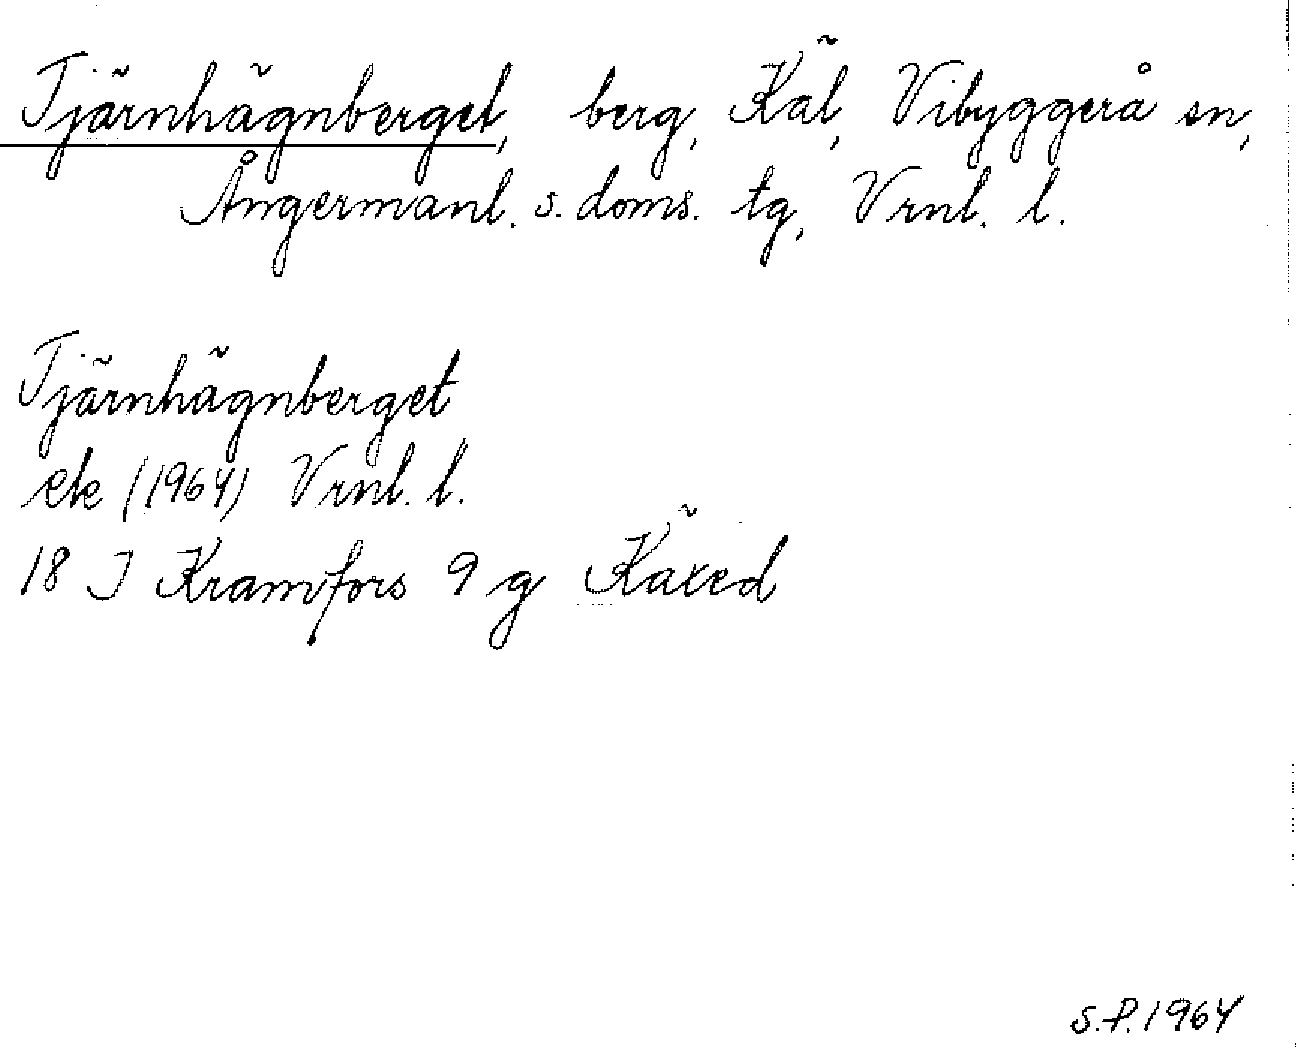 Tjärnhägnberget, berg, Käl, Vibyggerå sn,
Ångermanl. s. doms. tg, Vrnl. l.
Tjärnhägnberget
ek (1964) Vrnl. l.
18 J Kramfors 9 g Käxed
S.P. 1964